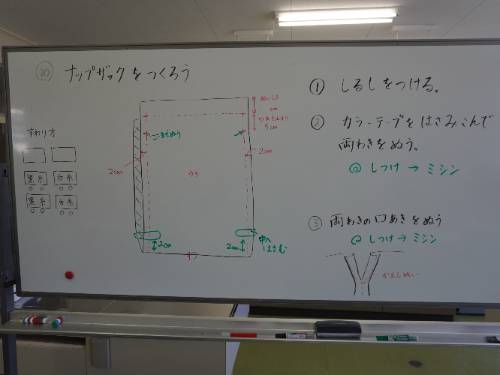 め ナップザックをつくろう
すわり方
2cm
二重ぬう
うら
2cm
5cm
2cm
2cm
中へ
はさむ
① しるしをつける。
② カラーテープをはさみこんで
両わきをぬう。
@ しつけ → ミシン
③ 両わきの口あきをぬう
@ しつけ → ミシン
かえしぬい